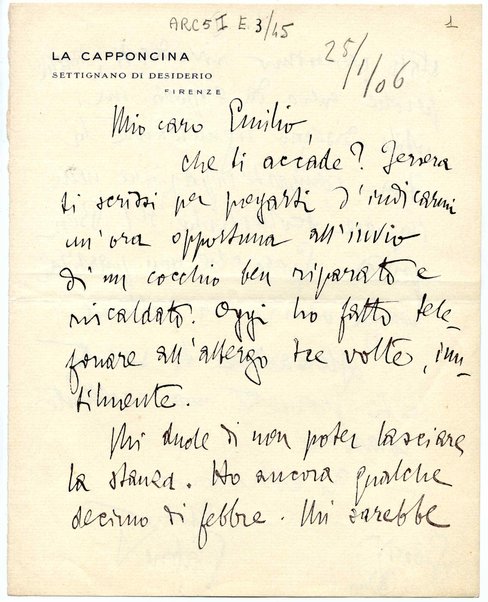 ARC 5 I E. 3/45
1
25/1/06
LA CAPPONCINA
SETTIGNANO DI DESIDERIO
FIRENZE
Mio caro Emilio,
che ti accade? Jersera
ti scrissi per pregarti d'indicarmi
un'ora opportuna all'invio
di un cocchio ben riparato e
riscaldato. Oggi ho fatto tele-
fonare all'albergo tre volte, inu-
tilmente.
Mi duole di non poter lasciare
la stanza. Ho ancora qualche
decimo di febbre. Mi sarebbe